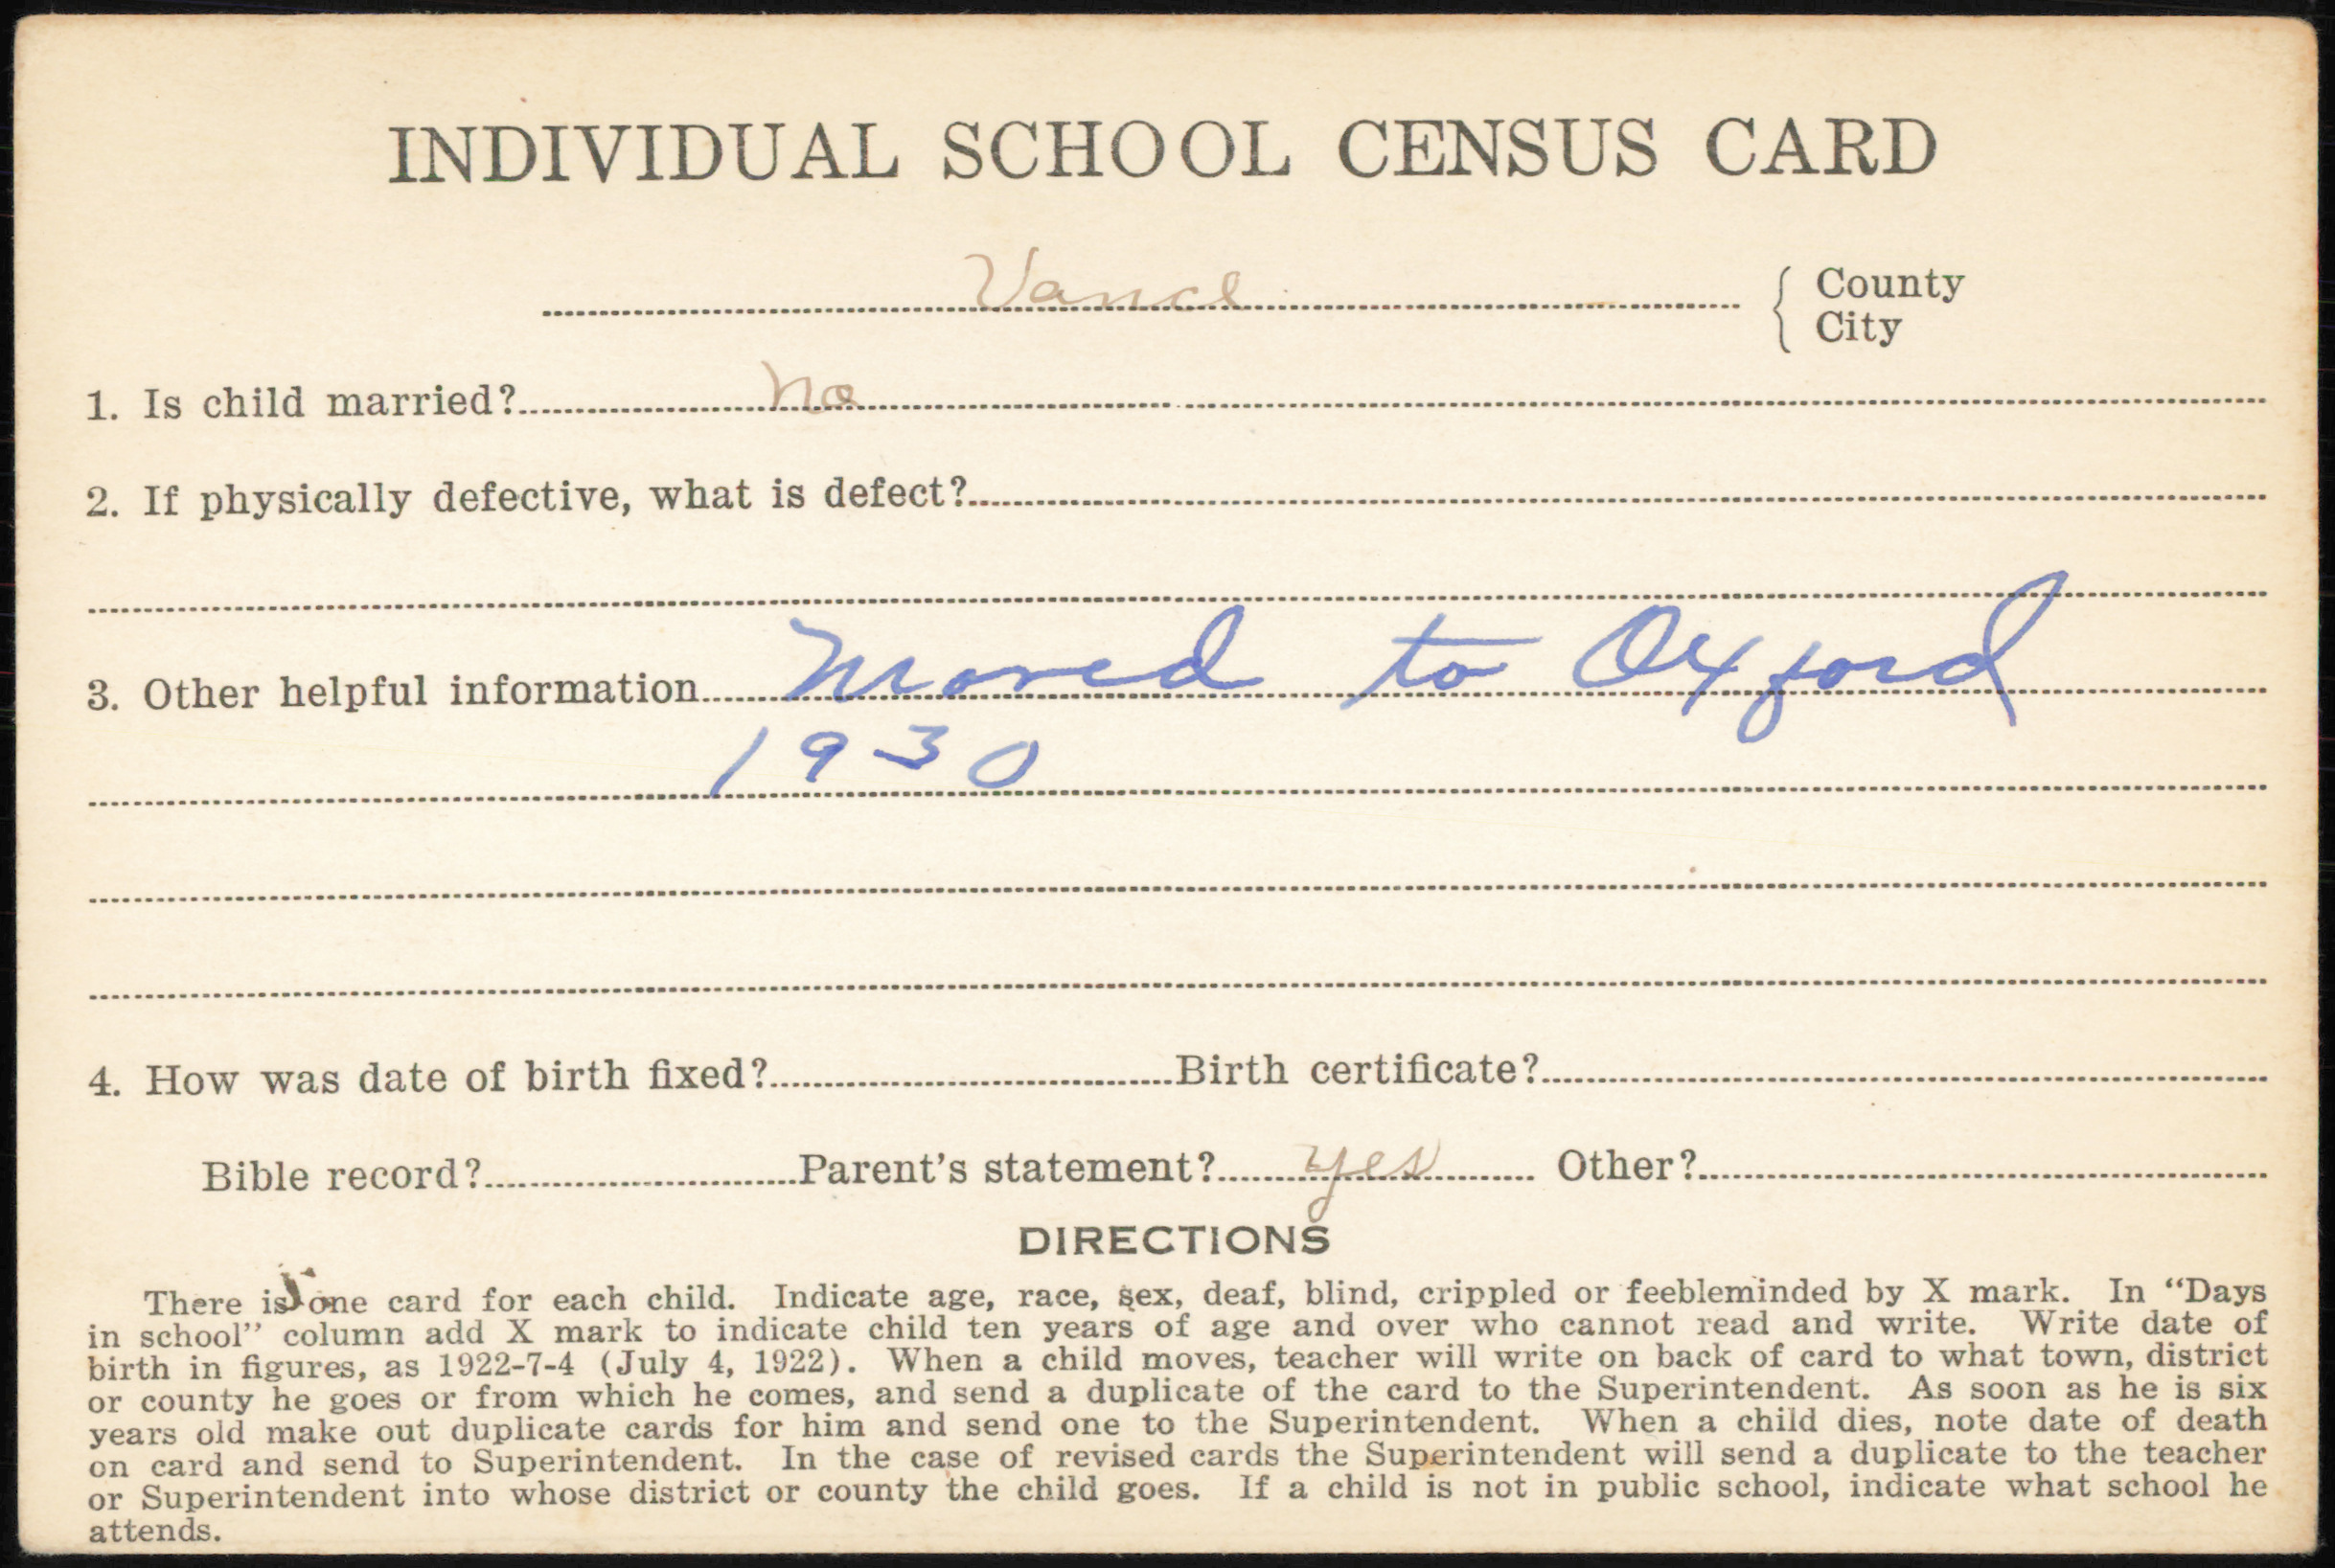 INDIVIDUAL SCHOOL CENSUS CARD
Vance { County
City
1. Is child married? No
2. If physically defective, what is defect?
3. Other helpful information Moved to Oxford
1930
4. How was date of birth fixed? Birth certificate?
Bible record? Parent's statement? yes Other?
DIRECTIONS
There is one card for each child. Indicate age, race, sex, deaf, blind, crippled or feebleminded by X mark. In “Days
in school” column add X mark to indicate child ten years of age and over who cannot read and write. Write date of
birth in figures, as 1922-7-4 (July 4, 1922). When a child moves, teacher will write on back of card to what town, district
or county he goes or from which he comes, and send a duplicate of the card to the Superintendent. As soon as he is six
years old make out duplicate cards for him and send one to the Superintendent. When a child dies, note date of death
on card and send to Superintendent. In the case of revised cards the Superintendent will send a duplicate to the teacher
or Superintendent into whose district or county the child goes. If a child is not in public school, indicate what school he
attends.